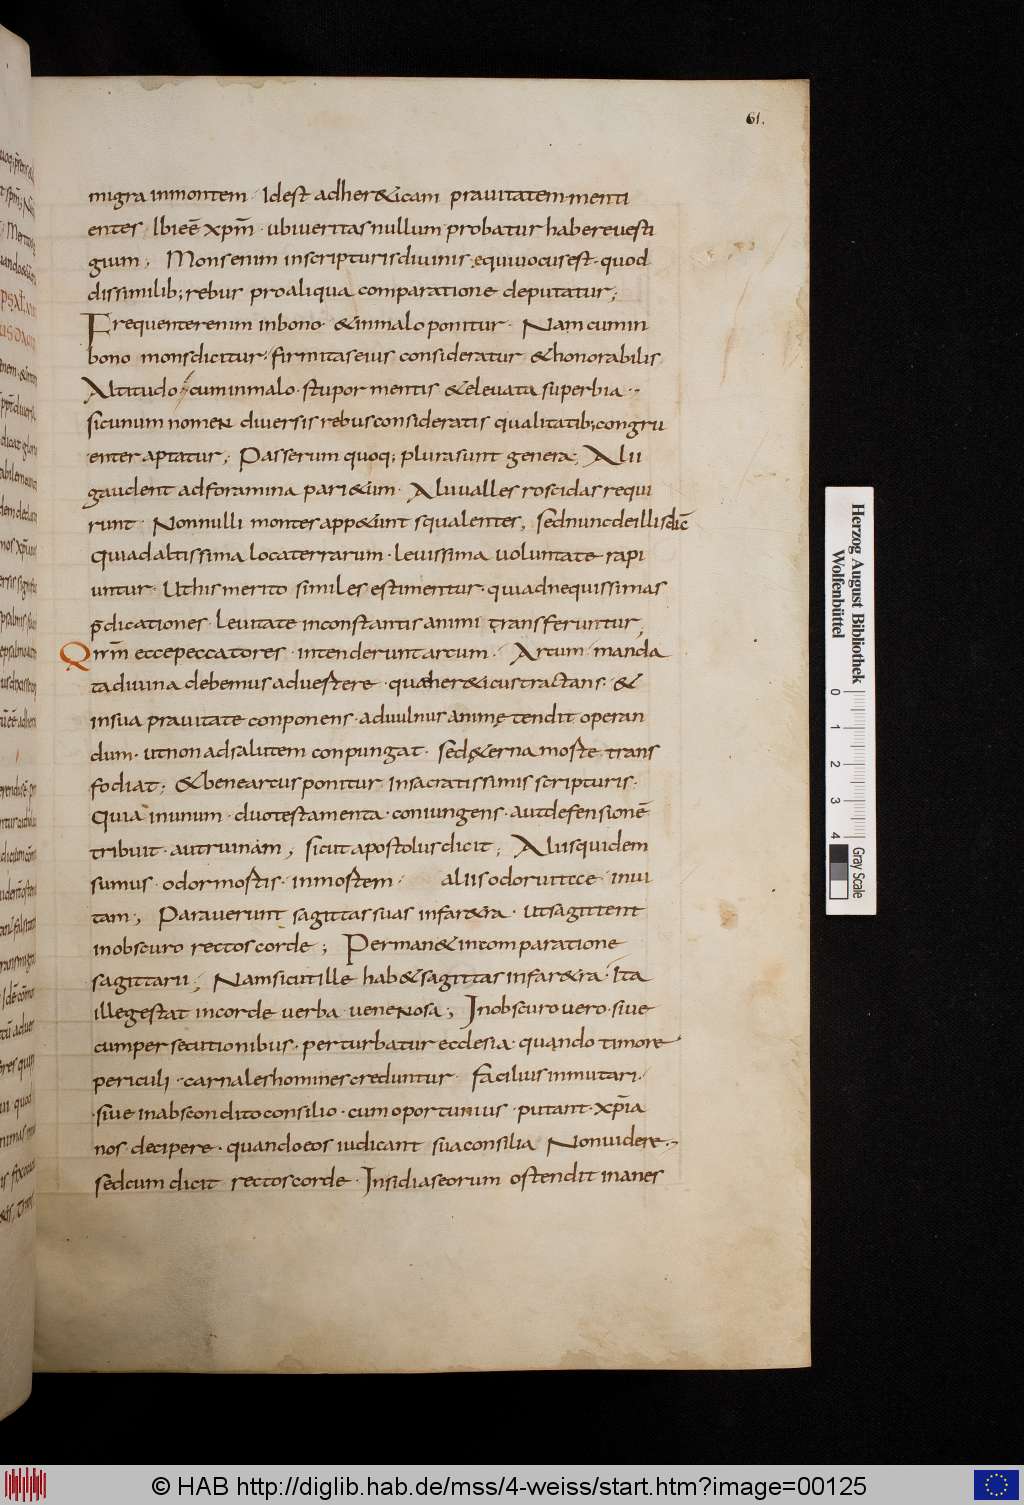 61.
migra inmontem · Idest adher&icam prauitatem·menti
entes · Ibieē xp̄m · ubiueritasnullum probatur habereuesti
gium; Monsenim inscripturisdiuinis equiuocusest·quod
dissimilib; rebus proaliqua comparatione deputatur;
Frequenterenim inbono · &inmaloponitur · Namcumin
bono monsdicitur· firmitaseius consideratur &honorabilis
Altitudo · cuminmalo · stupor mentis &eleuata superbia ·
sicunum nomen diuersis rebusconsideratis qualitatib; congru
enter aptatur; Passerum quoq; plurasunt genera; Alii
gaudent adforamina pari&um · Aliiualles roscidas requi
runt · Nonnulli montesapp&unt squalentes; sednuncdeillisdic̄
Quiadaltissima locaterrarum · leuissima uoluntate rapi
untur · Uthis merito similes estimentur · quiadnequissimas
p̄dicationes · leuitate inconstantis animi transferuntur;
Qm̄ eccepeccatores · intenderuntarcum · Arcum manda
tadiuina debemus aduertere · quaeher&icustractans · &
insua prauitate conponens · aduulnus animę tendit operan
dum · utnonadsalutem conpungat · sed&erna morte trans
fodiat; &benearcusponitur insacratissimis scripturis·
Quia inunum · duotestamenta · coniungens · autdefensionē
tribuit · autruinam; sicutapostolusdicit; Aliisquidem
sumus · odormortis · inmortem · aliisodoruitęce inui
tam; Parauerunt sagittassuas infar&ra · utsagittent
inobscuro rectoscorde; Perman&incomparatione
sagittarii; Namsicutille hab&sagittasinfar&ra · ita
illegestat incorde uerba uenenosa; Inobscurouero·siue
cumpersecutionibus · perturbatur ecclesia · quando timore
periculi · carnaleshominescreduntur facilius inmutari·
·siue inabsconditoconsilio · cumoportunius · putant·xp̄ia
nos decipere · quandoeos iudicant suaconsilia Nonuidere·
sedcum dicit rectoscorde · Insidiaseorum ostendit inanes
Herzog August Bibliothek
Wolfenbüttel
0 1 2 3 4
Gray Scale
© HAB http://diglib.hab.de/mss/4-weiss/start.htm?image=00125